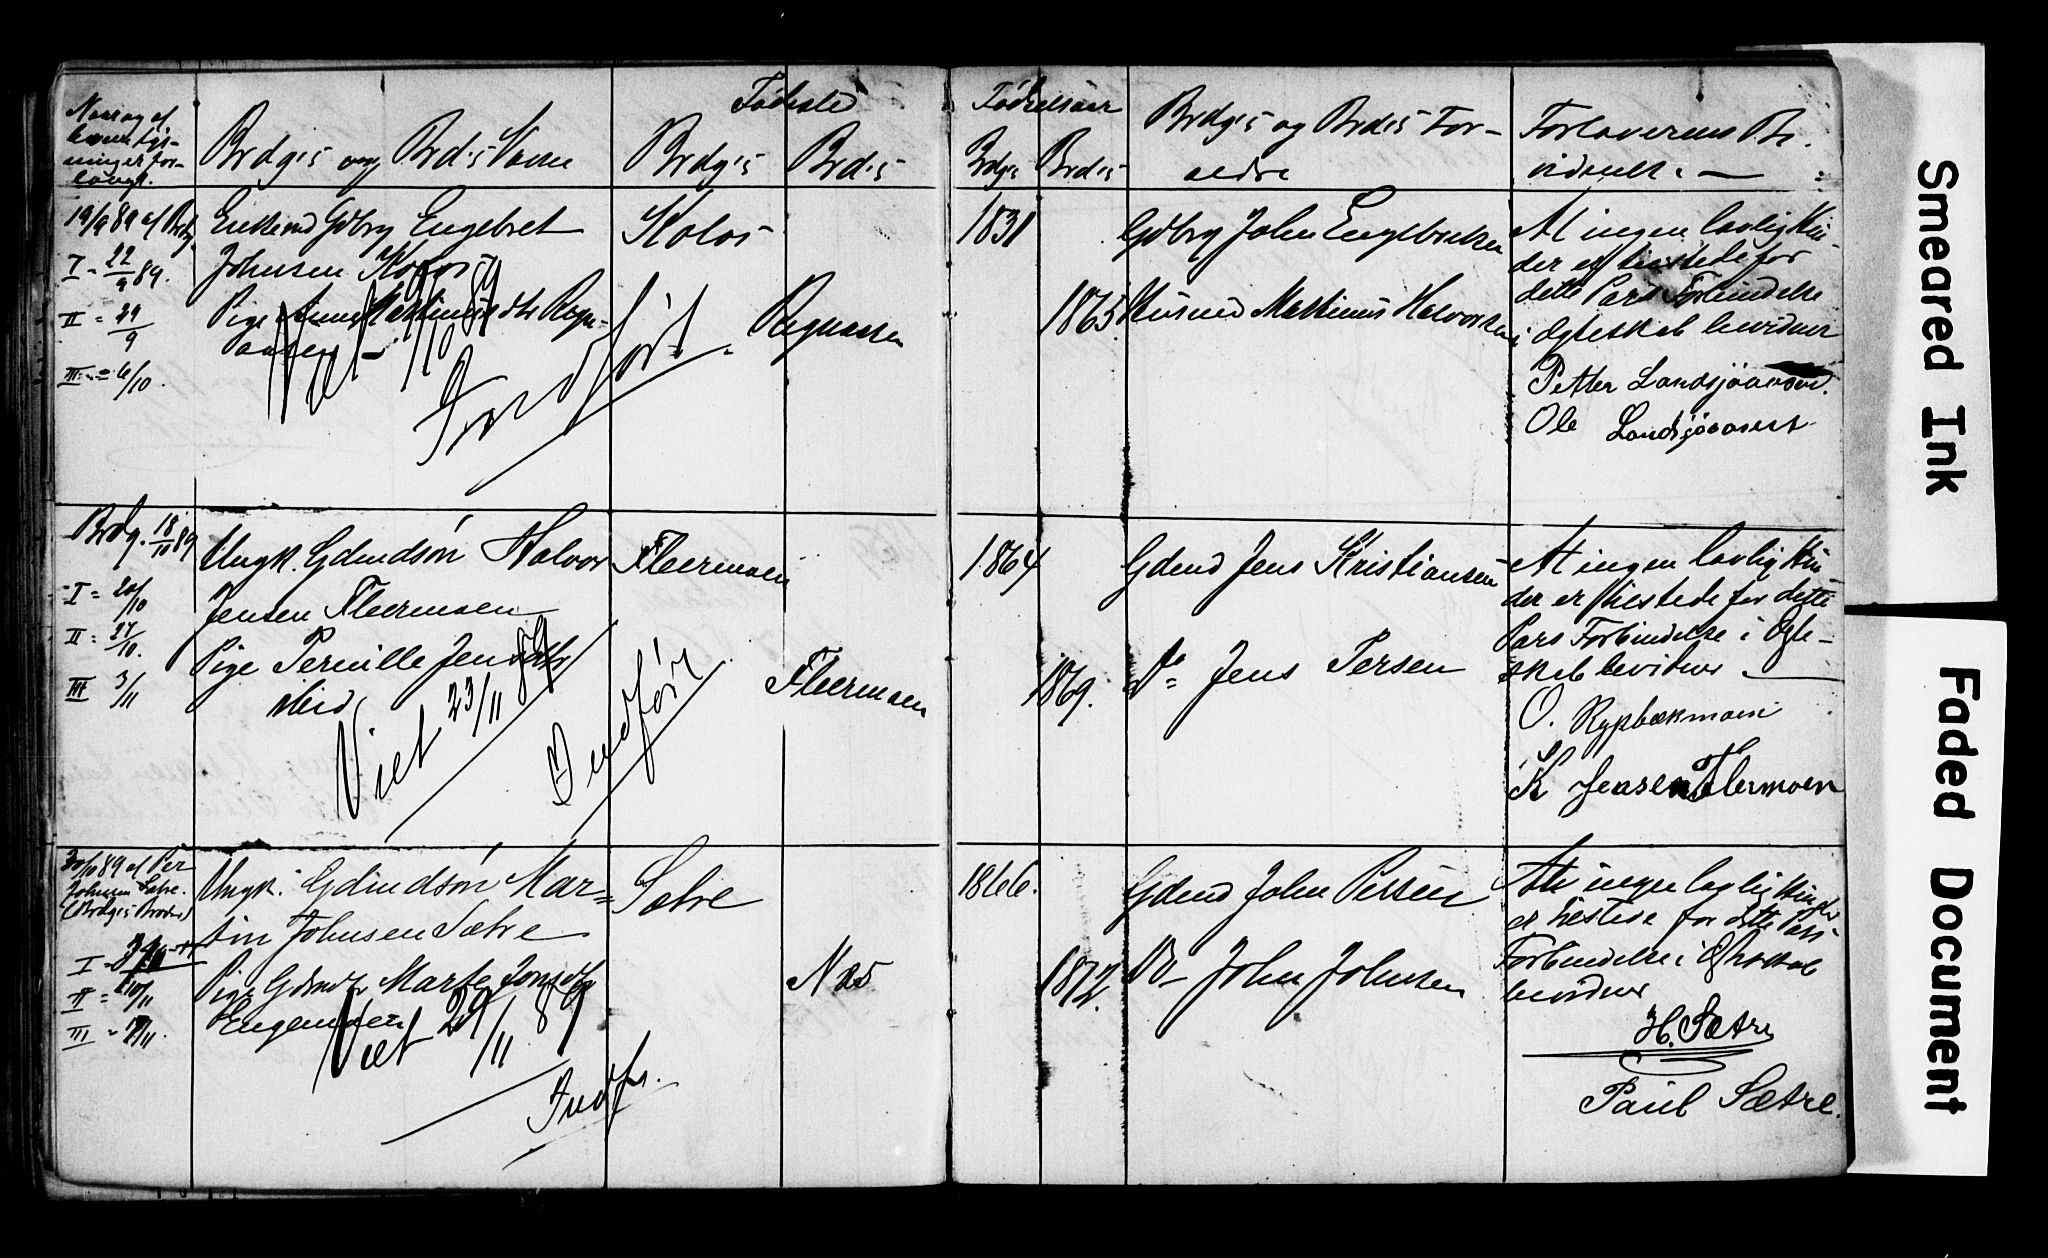 Naar og af
hvem lys-
ning er for-
langt.
Brdg:s og Brd:s Navne
Fødested
Brdg:s
Brd:s
Fødselsaar
Brdg:s
Brd:s
Brdg:s og Brd:s For-
ældre
Forlovernes Be-
vidnelse. —
19/9 89 af Brdg
I = 22/9 89.
II = 29/9
III = 6/10.
Enkemd Gdbrg Engebret
Johnsen Kolos
Pige Anne Mathinusdtr Rogn-
Viet 11/10 89
Indført.
Kolos
Rognaasen
1831
1865.
Gdbrg John Engebretsen
Husmd Mathinus Halvorsen
At ingen lovlig Hin-
der er tilstede for
dette Pars Forbindelse
i Ægteskab bevidner
Petter Landsjøaasen.
Ole Landsjøaasen
Brdg. 18/10 89
I = 20/10
II = 27/10.
III 3/11
Ungk. Gdmdsøn Halvor
Jensen Fleermoen
Pige Pernille Jensdtr
ibid
Viet 23/11 89
Indført
Fleermoen
Fleermoen
1864
1869.
Gdmd Jens Kristiansen
Do Jens Persen
At ingen lovlig Hin-
der er tilstede for dette
Pars Forbindelse i Ægte-
skab bevidner —
O. Rypbækmoen
K Jensen Flermoen
30/10 89 af Per
Johnsen Sætre.
(Brdg:s Broder)
II = 10/11
III = 17/11
Ungk. Gdmdsøn Mar-
tin Johnsen Sætre
Pige Gdmdtr Marte Jonsdtr
Engemoen
Viet 29/11 89
Indf.
Sætre
Næs
1866.
1872.
Gdmd John Persen
Do John Johnsen
At ingen lovlig Hinder
er tilstede for dette Pars
Forbindelse i Ægteskab
bevidner
H. Sætre
Paul Sætre.
Smeared Ink
Faded Document